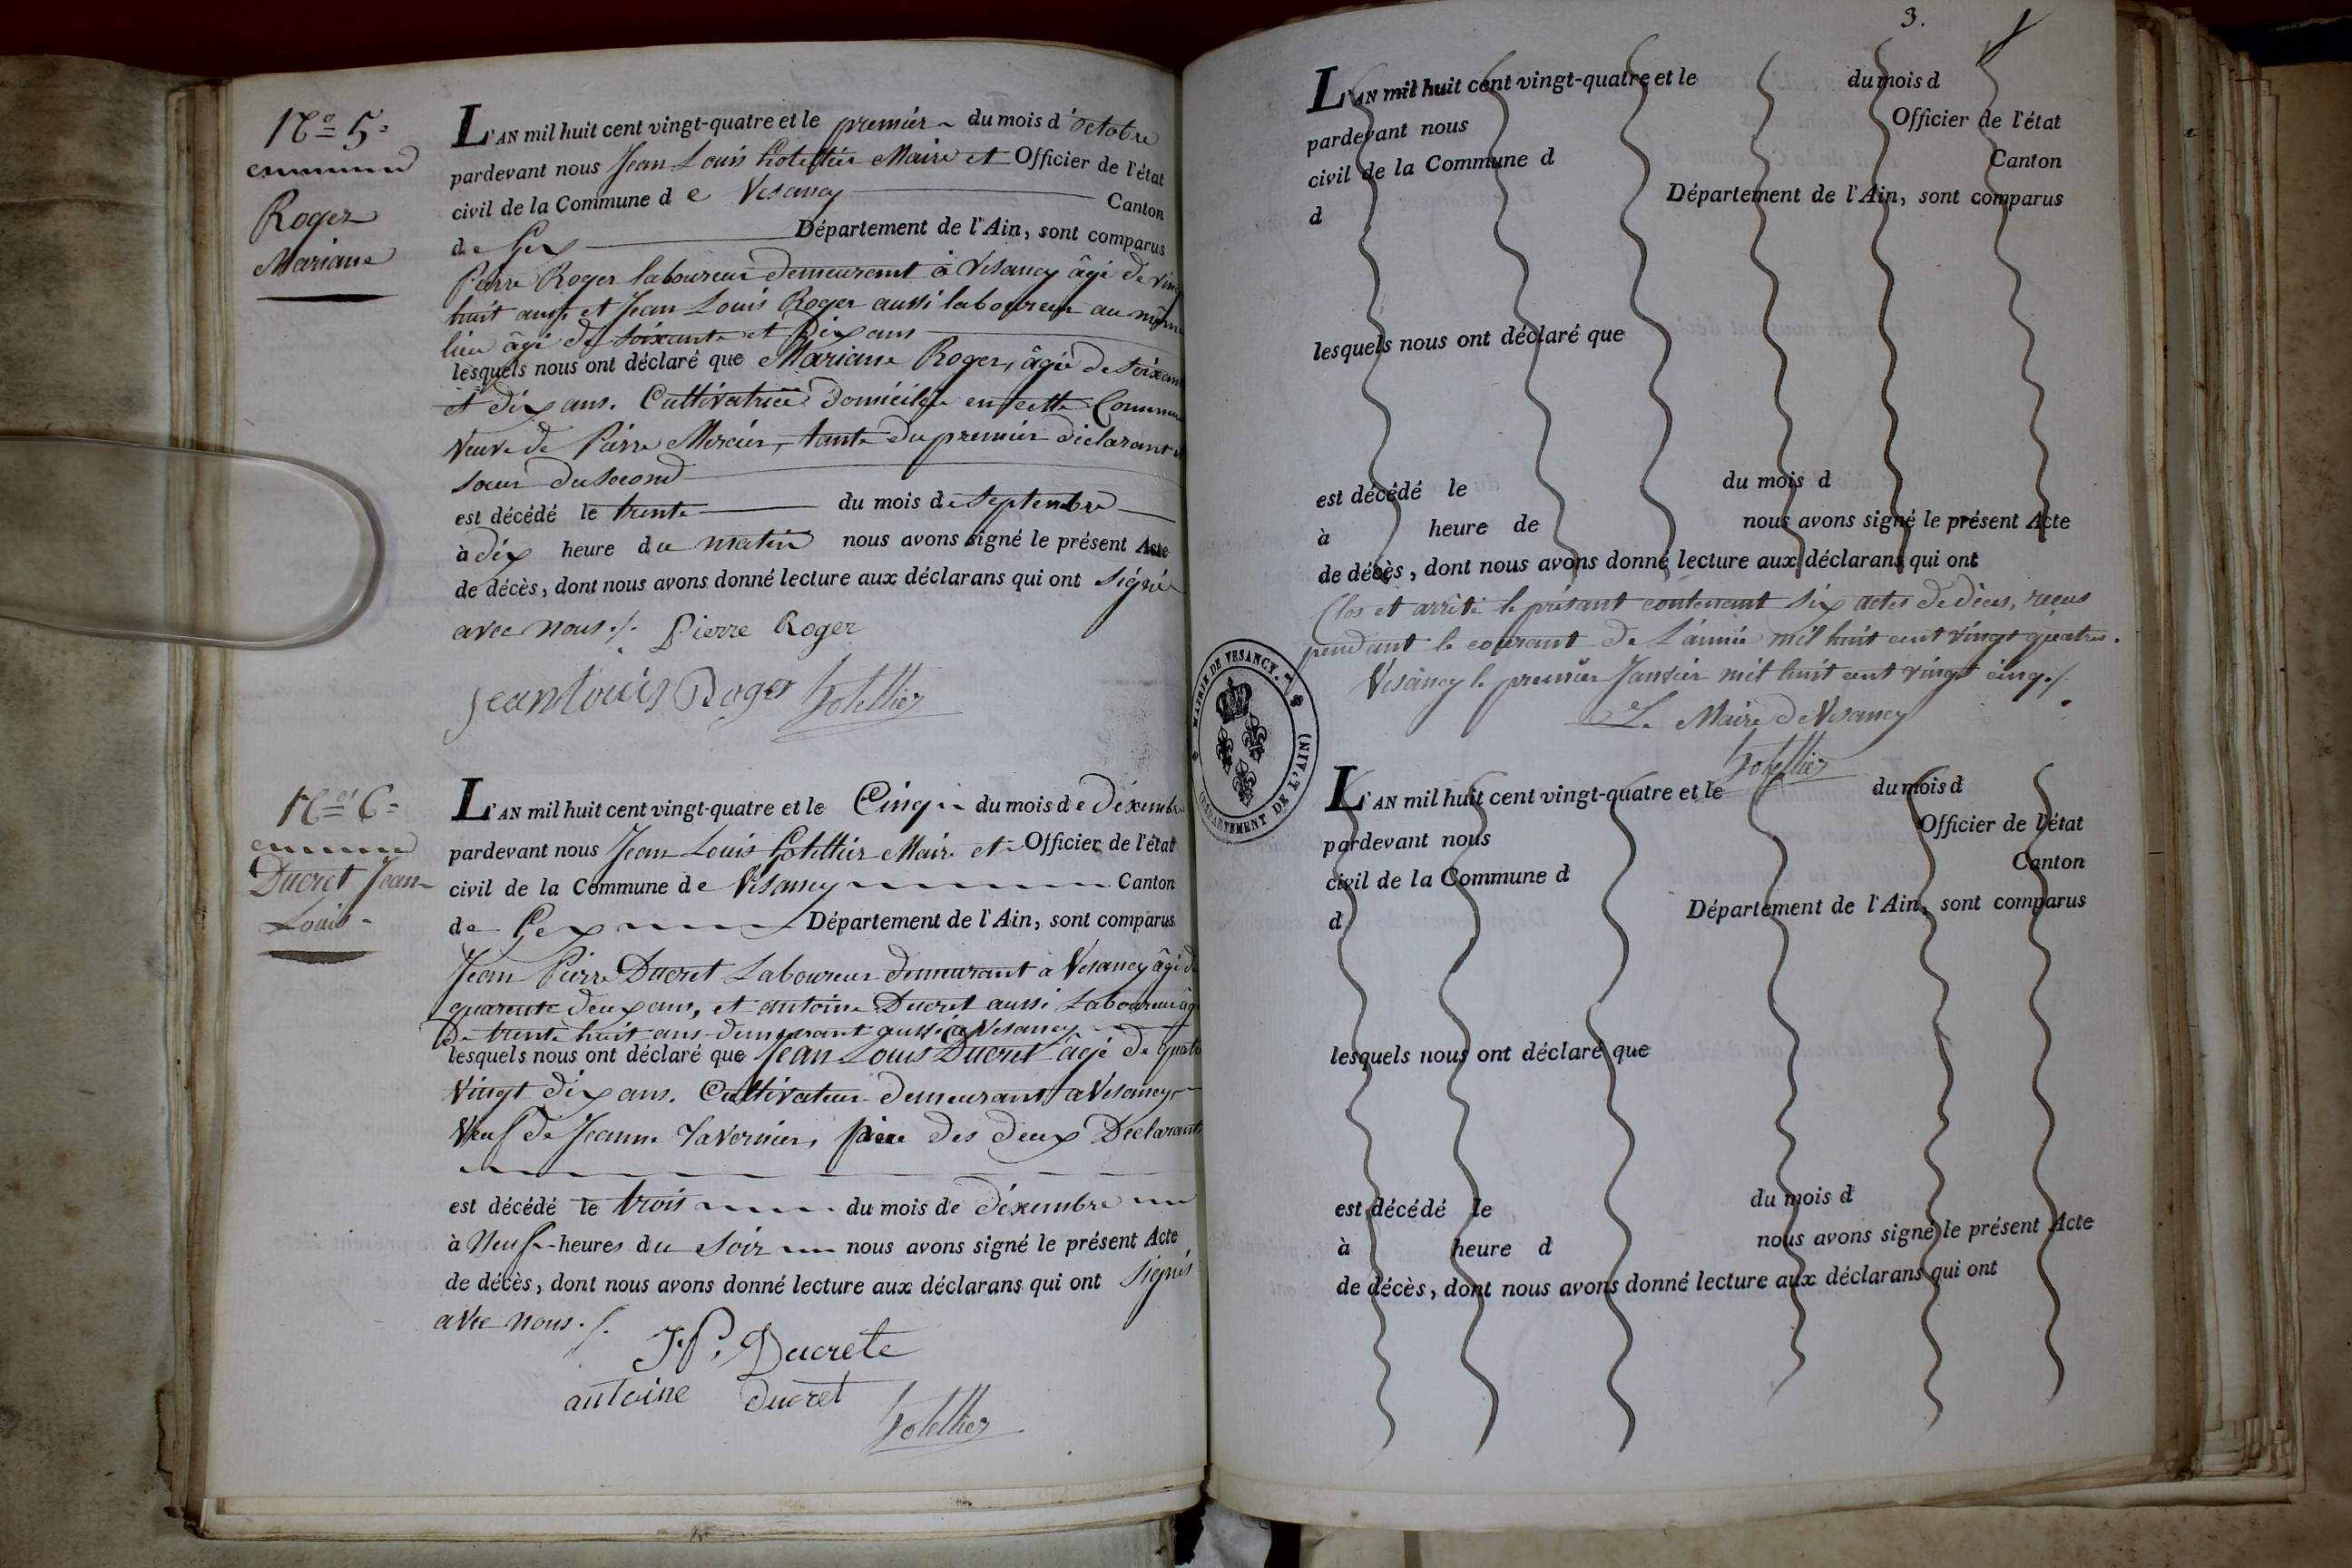 N.o 5.
Roger
Mariane
L'AN mil huit cent vingt-quatre et le premier du mois d'octobre
pardevant nous Jean Louis Hotellier Maire et Officier de l'état
civil de la Commune de Vesancy Canton
de Gex Département de l'Ain, sont comparus
Pierre Roger laboureur demeurant à Vesancy âgé de vin
huit ans et Jean Louis Roger aussi laboureur au même
lieu âgé de soixante et dix ans
lesquels nous ont déclaré que Mariane Roger, âgée de soixan
et dix ans. Cultivatrice domiciliée en cette Commune
Veuve de Pierre Mercier, tante du premier déclarant
soeur du second
est décédé le trente du mois de Septembre
à dix heure du matin nous avons signé le présent Acte
de décès, dont nous avons donné lecture aux déclarans qui ont signé
avec nous./. Pierre Roger
Jean Louis Roger Hotellier
N.o 6
Ducret Jean
Louis
L'AN mil huit cent vingt-quatre et le Cinq du mois de décembre
pardevant nous Jean Louis Hotellier Maire et Officier de l'état
civil de la Commune de Vesancy Canton
de Gex Département de l'Ain, sont comparus
Jean Pierre Ducret Laboureur demeurant a Vesancy âgé de
quarente deux ans, et antoine Ducret aussi Laboureur âg
de trente huit ans demeurant aussi a Vesancy
lesquels nous ont déclaré que Jean Louis Ducret âgé de quatre
Vingt dix ans. Cultivateur demeurant a Vesancy
Veuf de Jeanne Tavernier, père des deux Déclarants
est décédé le trois du mois de décembre
à Neuf heures du Soir nous avons signé le présent Acte
de décès, dont nous avons donné lecture aux déclarans qui ont signés
avec nous./.
J.P. Ducrete
antoine ducret
Hotellier
3.
L'AN mil huit cent vingt-quatre et le du mois d
pardevant nous Officier de l'état
civil de la Commune d Canton
d Département de l'Ain, sont comparus
lesquels nous ont déclaré que
est décédé le du mois d
à heure de nous avons signé le présent Acte
de décès, dont nous avons donné lecture aux déclarans qui ont
Clos et arrêté le présant contenant six actes de décès, reçus
pendant le courant de l'année mil huit cent vingt quatre.
Vesancy le premier Janvier mil huit cent vingt cinq./.
Le Maire de Vesancy
Hotellier
MAIRIE DE VESANCY.
(DÉPARTEMENT DE L'AIN)
L'AN mil huit cent vingt-quatre et le du mois d
pardevant nous Officier de l'état
civil de la Commune d Canton
d Département de l'Ain, sont comparus
lesquels nous ont déclaré que
est décédé le du mois d
à heure d nous avons signé le présent Acte
de décès, dont nous avons donné lecture aux déclarans qui ont